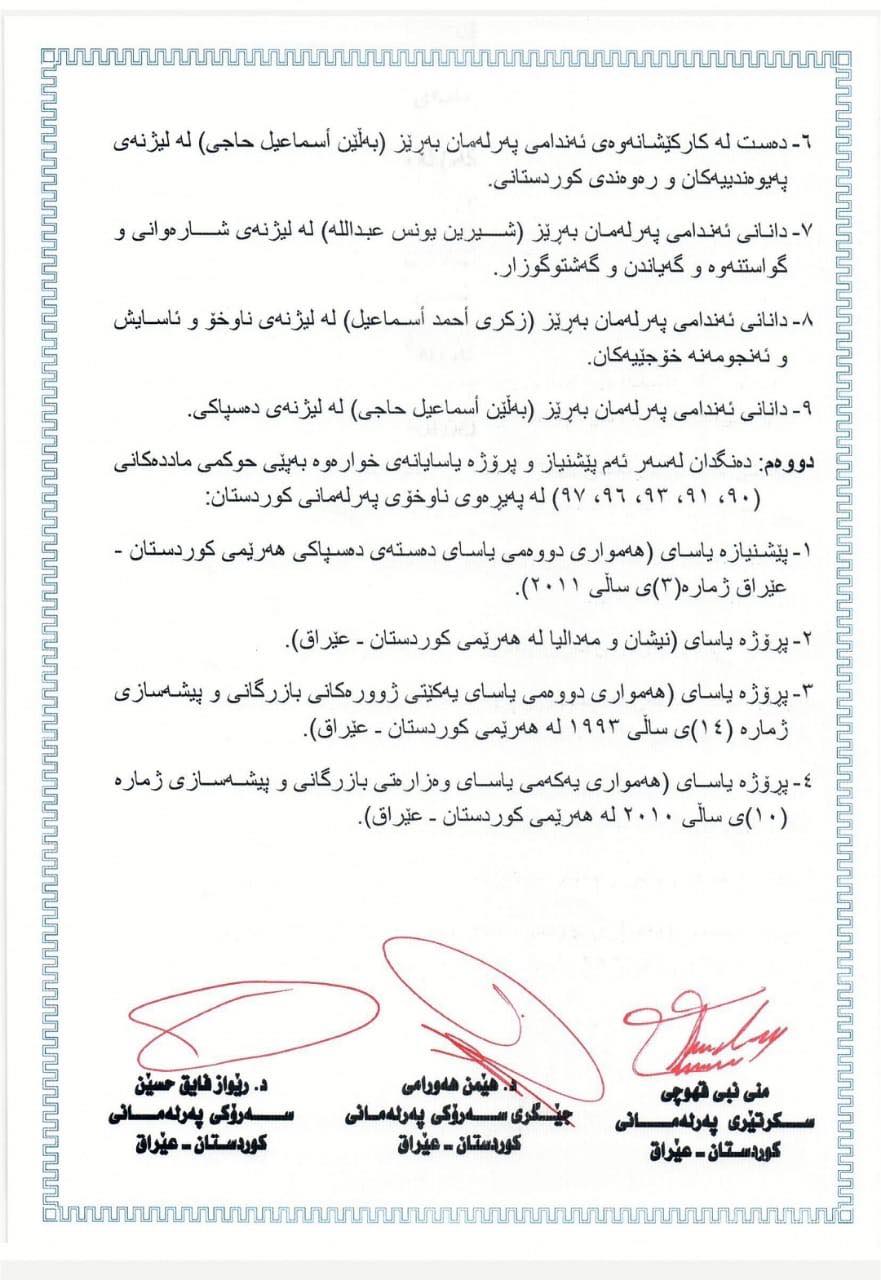 ٦- دەست لە کارکێشانەوەی ئەندامی پەرلەمان بەڕێز (بەڵێن أسماعیل حاجی) لە لیژنەی
پەیوەندییەکان و رەوەندی کوردستانی.
٧- دانانی ئەندامی پەرلەمان بەڕێز (شـــیرین یونس عبدالله) لە لیژنەی شـــارەوانی و
گواستنەوە و گەیاندن و گەشتوگوزار.
٨- دانانی ئەندامی پەرلەمان بەڕێز (زکری أحمد أسـماعیل) لە لیژنەی ناوخۆ و ئاسـایش
و ئەنجومەنە خۆجێیەکان.
٩- دانانی ئەندامی پەرلەمان بەڕێز (بەڵێن أسماعیل حاجی) لە لیژنەی دەسپاکی.
دووەم: دەنگدان لەسەر ئەم پێشنیاز و پرۆژە یاسایانەی خوارەوە بەپێی حوکمی ماددەکانی
(٩٠، ٩١، ٩٣، ٩٦، ٩٧) لە پەیڕەوی ناوخۆی پەرلەمانی کوردستان:
١- پێشنیازە یاسای (هەمواری دووەمی یاسای دەستەی دەسپاکی هەرێمی کوردستان -
عێراق ژمارە(٣)ی ساڵی ٢٠١١).
٢- پرۆژە یاسای (نیشان و مەدالیا لە هەرێمی کوردستان ـ عێراق).
٣- پرۆژە یاسای (هەمواری دووەمی یاسای یەکێتی ژوورەکانی بازرگانی و پیشەسازی
ژمارە (١٤)ی ساڵی ١٩٩٣ لە هەرێمی کوردستان ـ عێراق).
٤- پرۆژە یاسای (هەمواری یەکەمی یاسای وەزارەتی بازرگانی و پیشەسـازی ژمارە
(١٠)ی ساڵی ٢٠١٠ لە هەرێمی کوردستان ـ عێراق).
منی نبی قهوچی
ســکرتێری پەرلەمـــانی
کوردستان ـ عێراق
د. هێمن هەورامی
جێــگری ســـەرۆکی پەرلەمـانی
کوردستان ـ عێراق
د. رێواز فایق حسێن
ســـەرۆکی پەرلەمـــانی
کوردستان ـ عێراق